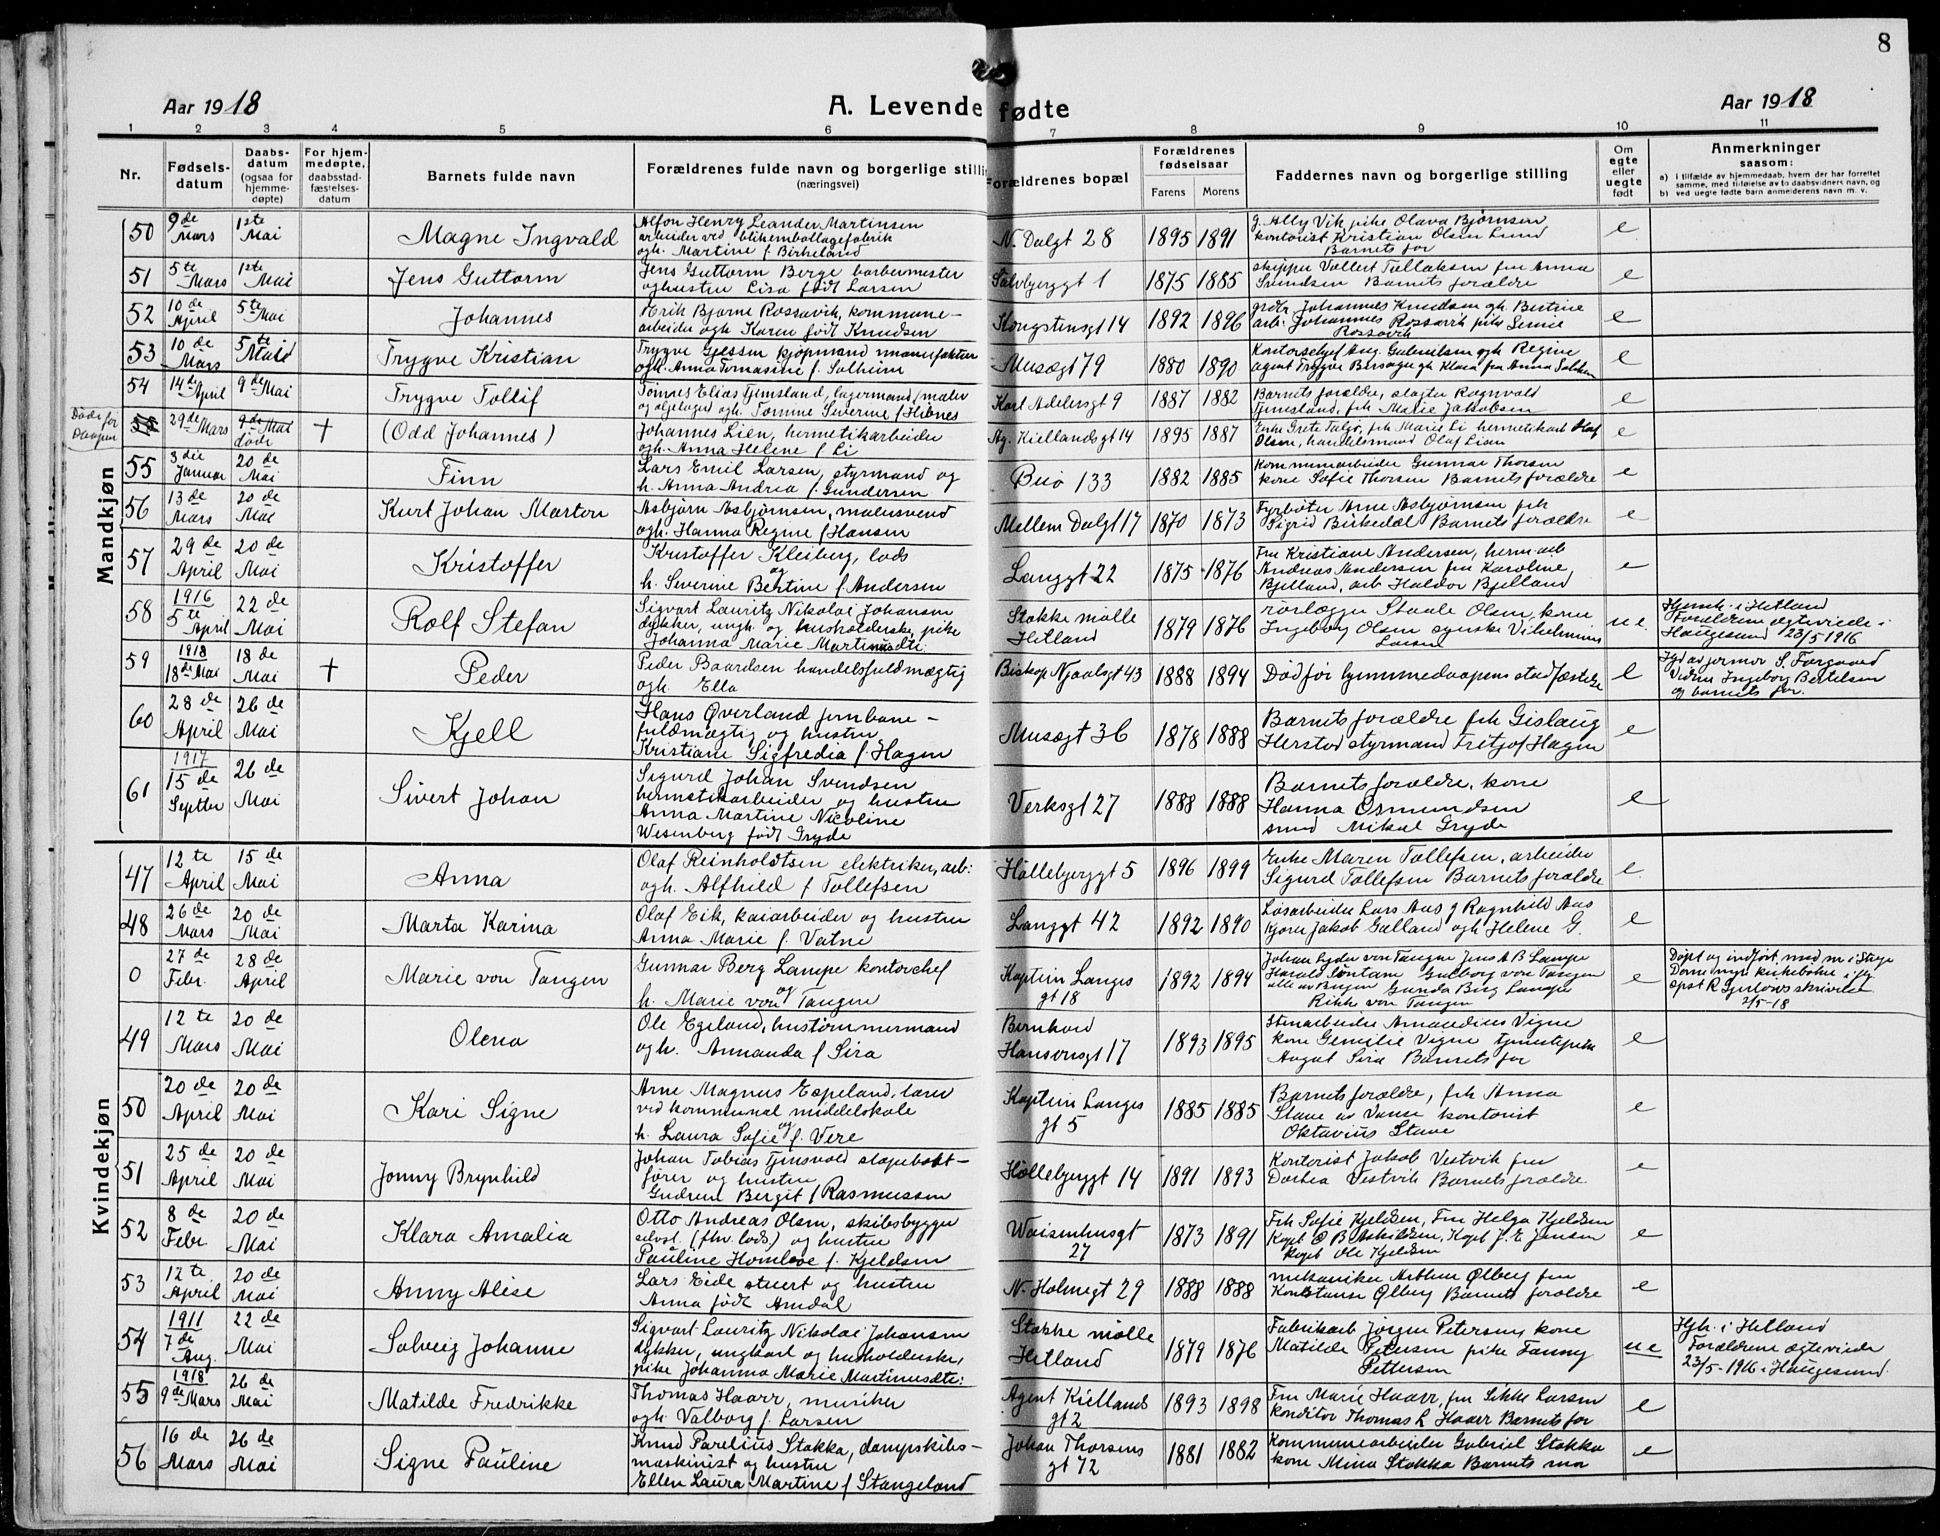 8
Aar 1918
A. Levende fødte
Aar 1918
1 2 3 4 5 6 7 8 9 10 11
Nr.
Fødsels-
datum
Daabs-
datum
(ogsaa for
hjemme-
døpte)
For hjem-
medøpte,
daabsstad-
fæstelses-
datum
Barnets fulde navn
Forældrenes fulde navn og borgerlige stilling
(næringsvei)
Forældrenes bopæl
Forældrenes
fødselsaar
Farens Morens
Faddernes navn og borgerlige stilling
Om
egte
eller
uegte
født
Anmerkninger
saasom:
a) i tilfælde av hjemmedaab, hvem der har forrettet
samme, med tilføielse av to daabsvidners navn, og
b) ved uegte fødte barn anmelderens navn m. v.
Mandkjøn
50 9de Mars 1ste Mai Magne Ingvald
Alfon Henry Leander Martinsen
arbeider ved blikemballagefabrik
ogh. Martine f. Birkeland
N. Dalgt 28 1895 1891
g. Ally Vik pike Olava Bjørnsen
kontorist Kristian Olsen Lund
Barnets far
e
51 5te Mars 1ste Mai Jens Guttorm
Jens Guttorm Berge barbermester
og hustru Lisa født Larsen
Sølvbjerggt 1 1875 1885
skipper Vallert Tallaksen fru Anna
Svendsen Barnets forældre
e
52 10de April 5te Mai Johannes
Erik Bjarne Rossavik, kommune-
arbeider ogh Karen født Knudsen
Kongstensgt 14 1892 1896
Johannes Knudsen gh. Bertine
arb. Johannes Rossavik pike
Rossavik
e
53 10de Mars 5te Mai Trygve Kristian
Trygve Gjessen kjøpmand manufaktur
ogh. Anna Tomasine f. Solheim
Musægt 79 1880 1890
Kontorchef Aug. Gabrielsen ogh Regine
agent Trygve ogh Klara fru Anna
e
54 14de April 9de Mai Trygve Tollif
Tønnes Elias Tjemsland, lagermand (maler
og ogh. Tomine Severine f. Hebnes
Karl Adelersgt 9 1887 1882
Barnets forældre, slagter Ragnvald
Tjemsland, frk Marie Jakobsen
e
Døde før
Daapen
55 29de Mars 9de Mai døde † (Odd Johannes)
Johannes Lien, hermetikarbeider
ogh. Anna Helene f. Li
Ag. Kiellandsgt 14 1895 1887
Enke Grete frk Marie Li hermetikarb Olaf
Olsen, handelsmand Olaf Lien
e
55 3die Januar 20de Mai Finn
Lars Emil Larsen, styrmand og
h. Anna Andrea f. Gundersen
Buø 133 1882 1885
Kommunearbeider Gunnar Thorsen
kone Sofie Thorsen Barnets forældre
e
56 13de Mars 20de Mai Kurt Johan Marton
Asbjørn Asbjørnsen, malersvend
ogh. Hanna Regine f. Hansen
Mellem Dalgt 17 1870 1873
Fyrbøter Arne Asbjørnsen frk
Sigrid Birkedal Barnets forældre
e
57 29de April 20de Mai Kristoffer
Kristoffer Kleiberg, lods
og
h. Severine Bertine f. Andersen
Langgt 22 1875 1876
Fru Kristiane Andersen, herm arb
Andreas Andersen fru Karoline
Bjelland, arb Haldor Bjelland
e
58 1916 5te April 22de Mai Rolf Stefan
Sigvart Lauritz Nikolai Johansen
dykker, ungk. og husholderske, pike
Johanna Marie Martinusdtr.
Stokke mølle
Hetland
1879 1876
rørlægger Staale Olsen, kone
Ingeborg Olsen Vilhelmine
Larsen
u e
Hjemh. i Hetland
Forældrene egteviede i
Haugesund 23/5 1916
59 1918 18de Mai 18de Mai † Peder
Peder Baardsen handelsfuldmægtig
ogh. Ella
Biskop Njaalsgt 43 1888 1894
Død før hjemmedaapens stadfæstelse
e
Jrd av jormor S. Forgaard
Vidne Ingeborg Bertelsen
og barnets far.
60 28de April 26de Mai Kjell
Hans Øverland jernbane-
fuldmægtig og hustru
Kristiane Sigfredia f. Hagen
Musægt 36 1878 1888
Barnets forældre frk Gislaug
Herstad styrmand Fritjof Hagen
e
61 1917 15de Septbr 26de Mai Sivert Johan
Sigurd Johan Svendsen
hermetikarbeider og hustru
Anna Martine Nicoline
Wesenberg født Gryde
Verksgt 27 1888 1888
Barnets forældre, kone
Hanna Osmundsen
smed Mikal Gryde
e
Kvindekjøn
47 12te April 15de Mai Anna
Olaf Reinholdtsen elektriker, arb:
ogh. Alfhild f Tollefsen
Hollebjerggt 5 1896 1899
Enke Maren Tollefsen, arbeider
Sigurd Tollefsen Barnets forældre
e.
48 26de Mars 20de Mai Marta Karina
Olaf Eik, kaiarbeider og hustru
Anna Marie f. Vatne
Langgt 42 1892 1890
Løsarbeider Lars Aas g Ragnhild Aas
Kjører Jakob Galland ogh Helene G.
e
0 27de Febr. 28de April Marie von Tangen
Gunnar Berg Lampe kontorchef
og
h. Marie von Tangen
Kaptein Langes
gt 18
1892 1894
Johan Lyder von Tangen Jens A B Lampe
Harald Sontam Gudborg von Tangen
alle av Bergen Gunda Berg Lampe
Rikke von Tangen
e
Døpt og indført med nr i Stvgr
Domk. nye kirkebøke iflg
opst R Gjerløws skrivelse
2/5-18
49 12te Mars 20de Mai Olena
Ole Egeland, hustømmermand
ogh. Annanda f Sira
Bernhard
Hansonsgt 17
1893 1895
Stenarbeider Amandius Vigne
kone Gemilie Vigne tjenestepike
August Sira Barnets far
e
50 20de April 20de Mai Kari Signe
Arne Magnus Espeland, lærer
ved kommunal middelskole
og
h. Laura Sofie f. Vere
Kaptein Langes
gt 5
1885 1885
Barnets forældre, frk Anna
Stave av Vanse kontorist
Oktavius Stave
e
51 25de April 20de Mai Jonny Brynhild
Johan Tobias Tjensvold skapebokt-
fører og hustru
Gudrun Bergit f Rasmussen
Hollebjerggt 14 1891 1893
Kontorist Jakob Vestvik fru
Dortea Vestvik Barnets forældre
e
52 8de Febr 20de Mai Klara Amalia
Otto Andreas Olsen, skibsbygger
selvst. (fhv. lods) og hustru
Pauline Homleve f. Kjeldsen
Waisenhusgt
27
1873 1891
Frk Sofie Kjeldsen, Fru Helga Kjeldsen
Kapt O B Askildsen, Kapt J. E Jensen
Kapt Ole Kjeldsen
e
53 12te April 20de Mai Anny Alise
Lars Eide stuert og hustru
Anna født Amdal
N. Holmegt 29 1888 1888
mekaniker Arthur Ølberg fru
Konstanse Ølberg Barnets forældre
e
54 1911 7de Aug. 22de Mai Solveig Johanne
Sigvart Lauritz Nikolai Johansen
dykker, ungkarl og husholderske,
pike Johanna Marie Martinusdtr:
Stokke mølle
Hetland
1879 1876
Fabrikarb Jørgen Petersen, kone
Matilde Petersen pike Fanny
Pettersen
u e
Hjh. i Hetland
Forældrene egteviede
23/5-1916 i Haugesund.
55 1918 9de Mars 26de Mai Matilde Fredrikke
Thomas Haarr, musiker
ogh. Valborg f. Larsen
Agent Kielland
gt 2
1893 1898
Fru Marie Haarr, fru Sikke Larsen
konditor Thomas L Haarr Barnets far
e
56 16de Mars 26de Mai Signe Pauline
Knud Parelius Stokka, dampskibs-
maskinist og hustru
Ellen Laura Martine f Stangeland
Johan Thorsens
gt 72
1881 1882
Kommunearbeider Gabriel Stokka
kone Mina Stokka Barnets mor
e